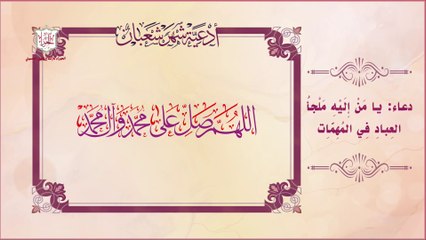 أدعية شهر شعبان
اللهم صل على محمد وآل محمد
دعاء: يا مَنْ إلَيْهِ مَلْجَأُ
العِبادِ في المُهِمّاتِ